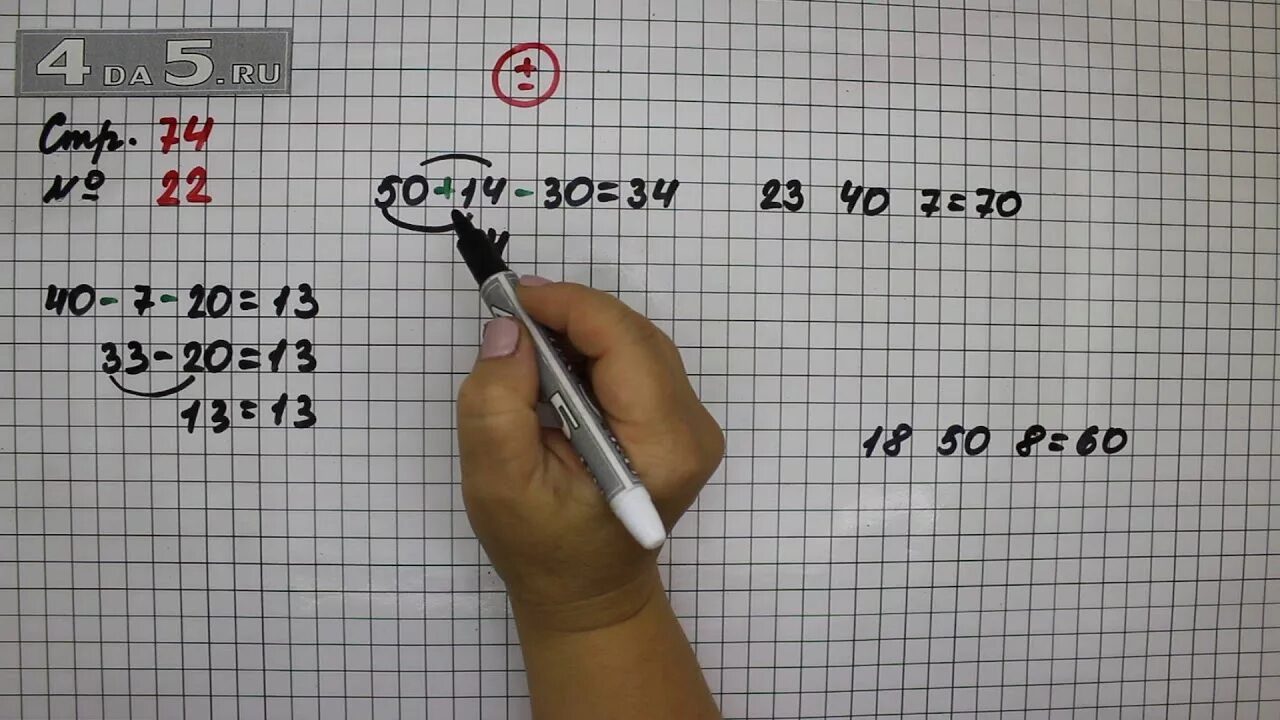 4DA5.RU
Стр. 74
№ 22
+
-
50+14-30=34
23 40 7=70
40-7-20=13
33-20=13
13=13
18 50 8=60